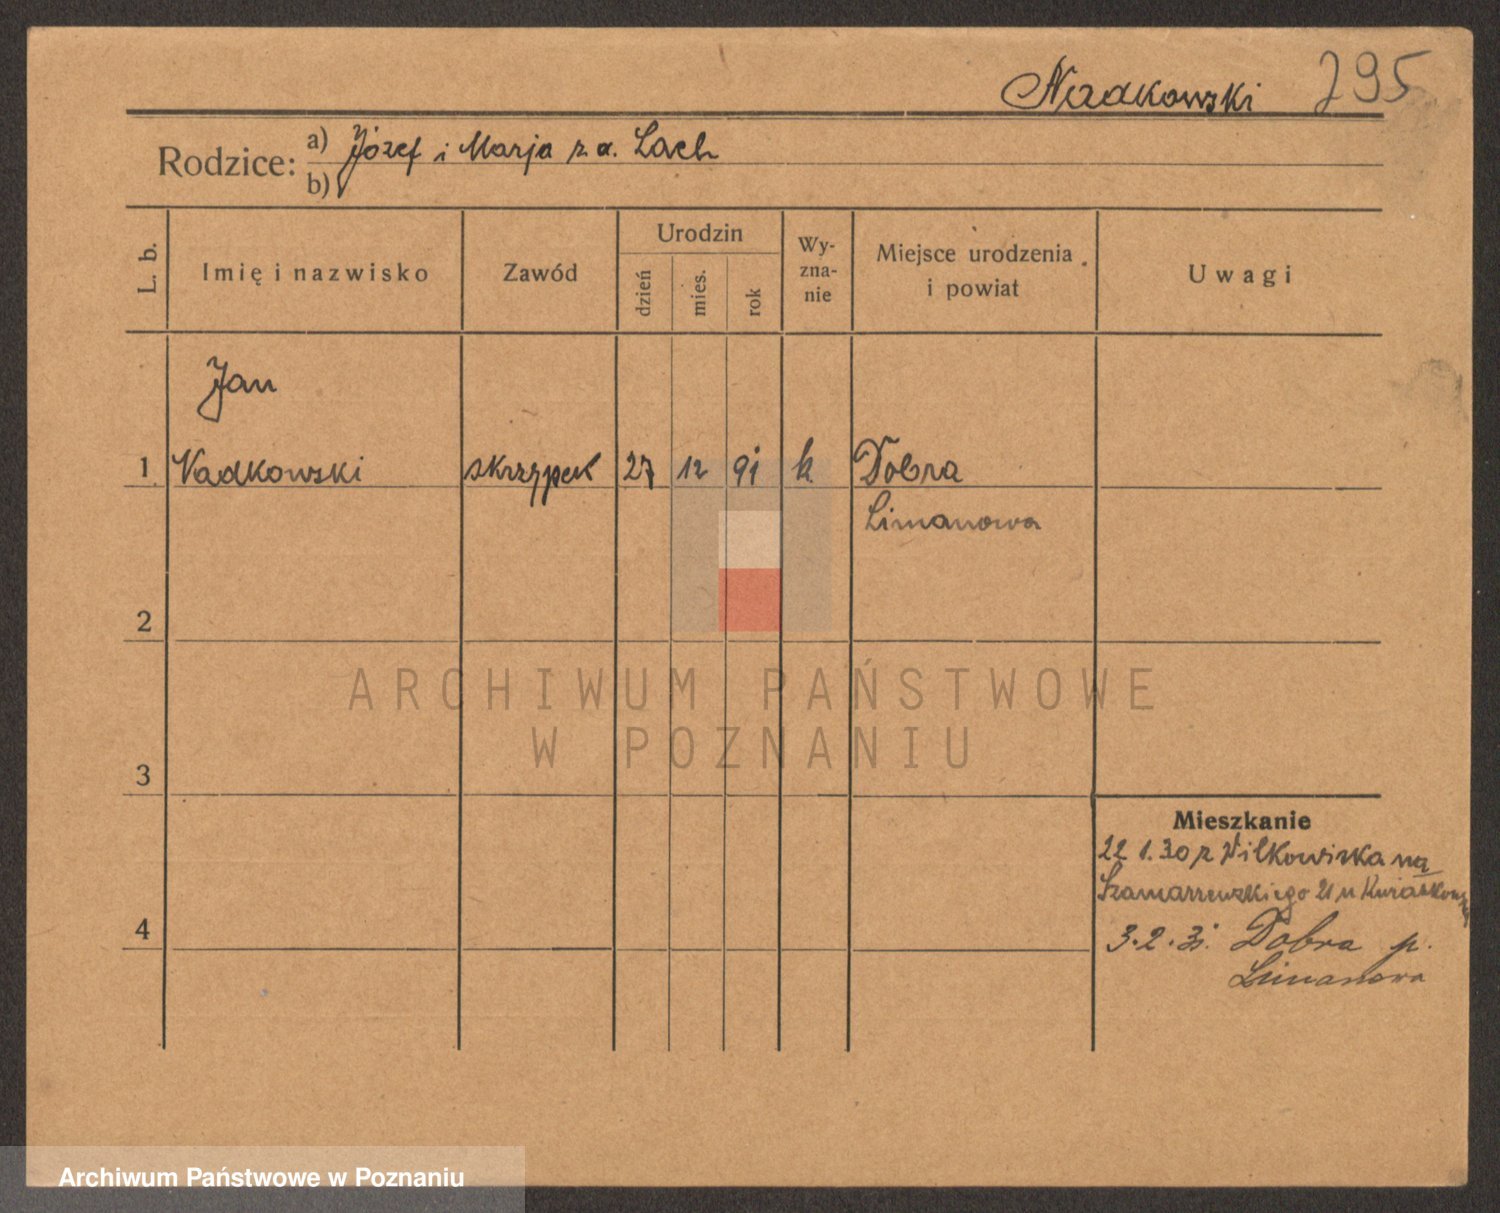 Nadkowski 295
Rodzice: a) Józef i Marja z d. Lach
b)
L. b. Imię i nazwisko Zawód Urodzin dzień mies. rok Wy-zna-nie Miejsce urodzenia i powiat Uwagi
Jan
1 Nadkowski skrzypek 27 12 91 k. Dobra
Limanowa
2
ARCHIWUM PAŃSTWOWE
W POZNANIU
3
Mieszkanie
22 1.30 z Wilkowiska na
Szamarzewskiego 21 u
4
3.2.31. Dobra p.
Limanowa
Archiwum Państwowe w Poznaniu